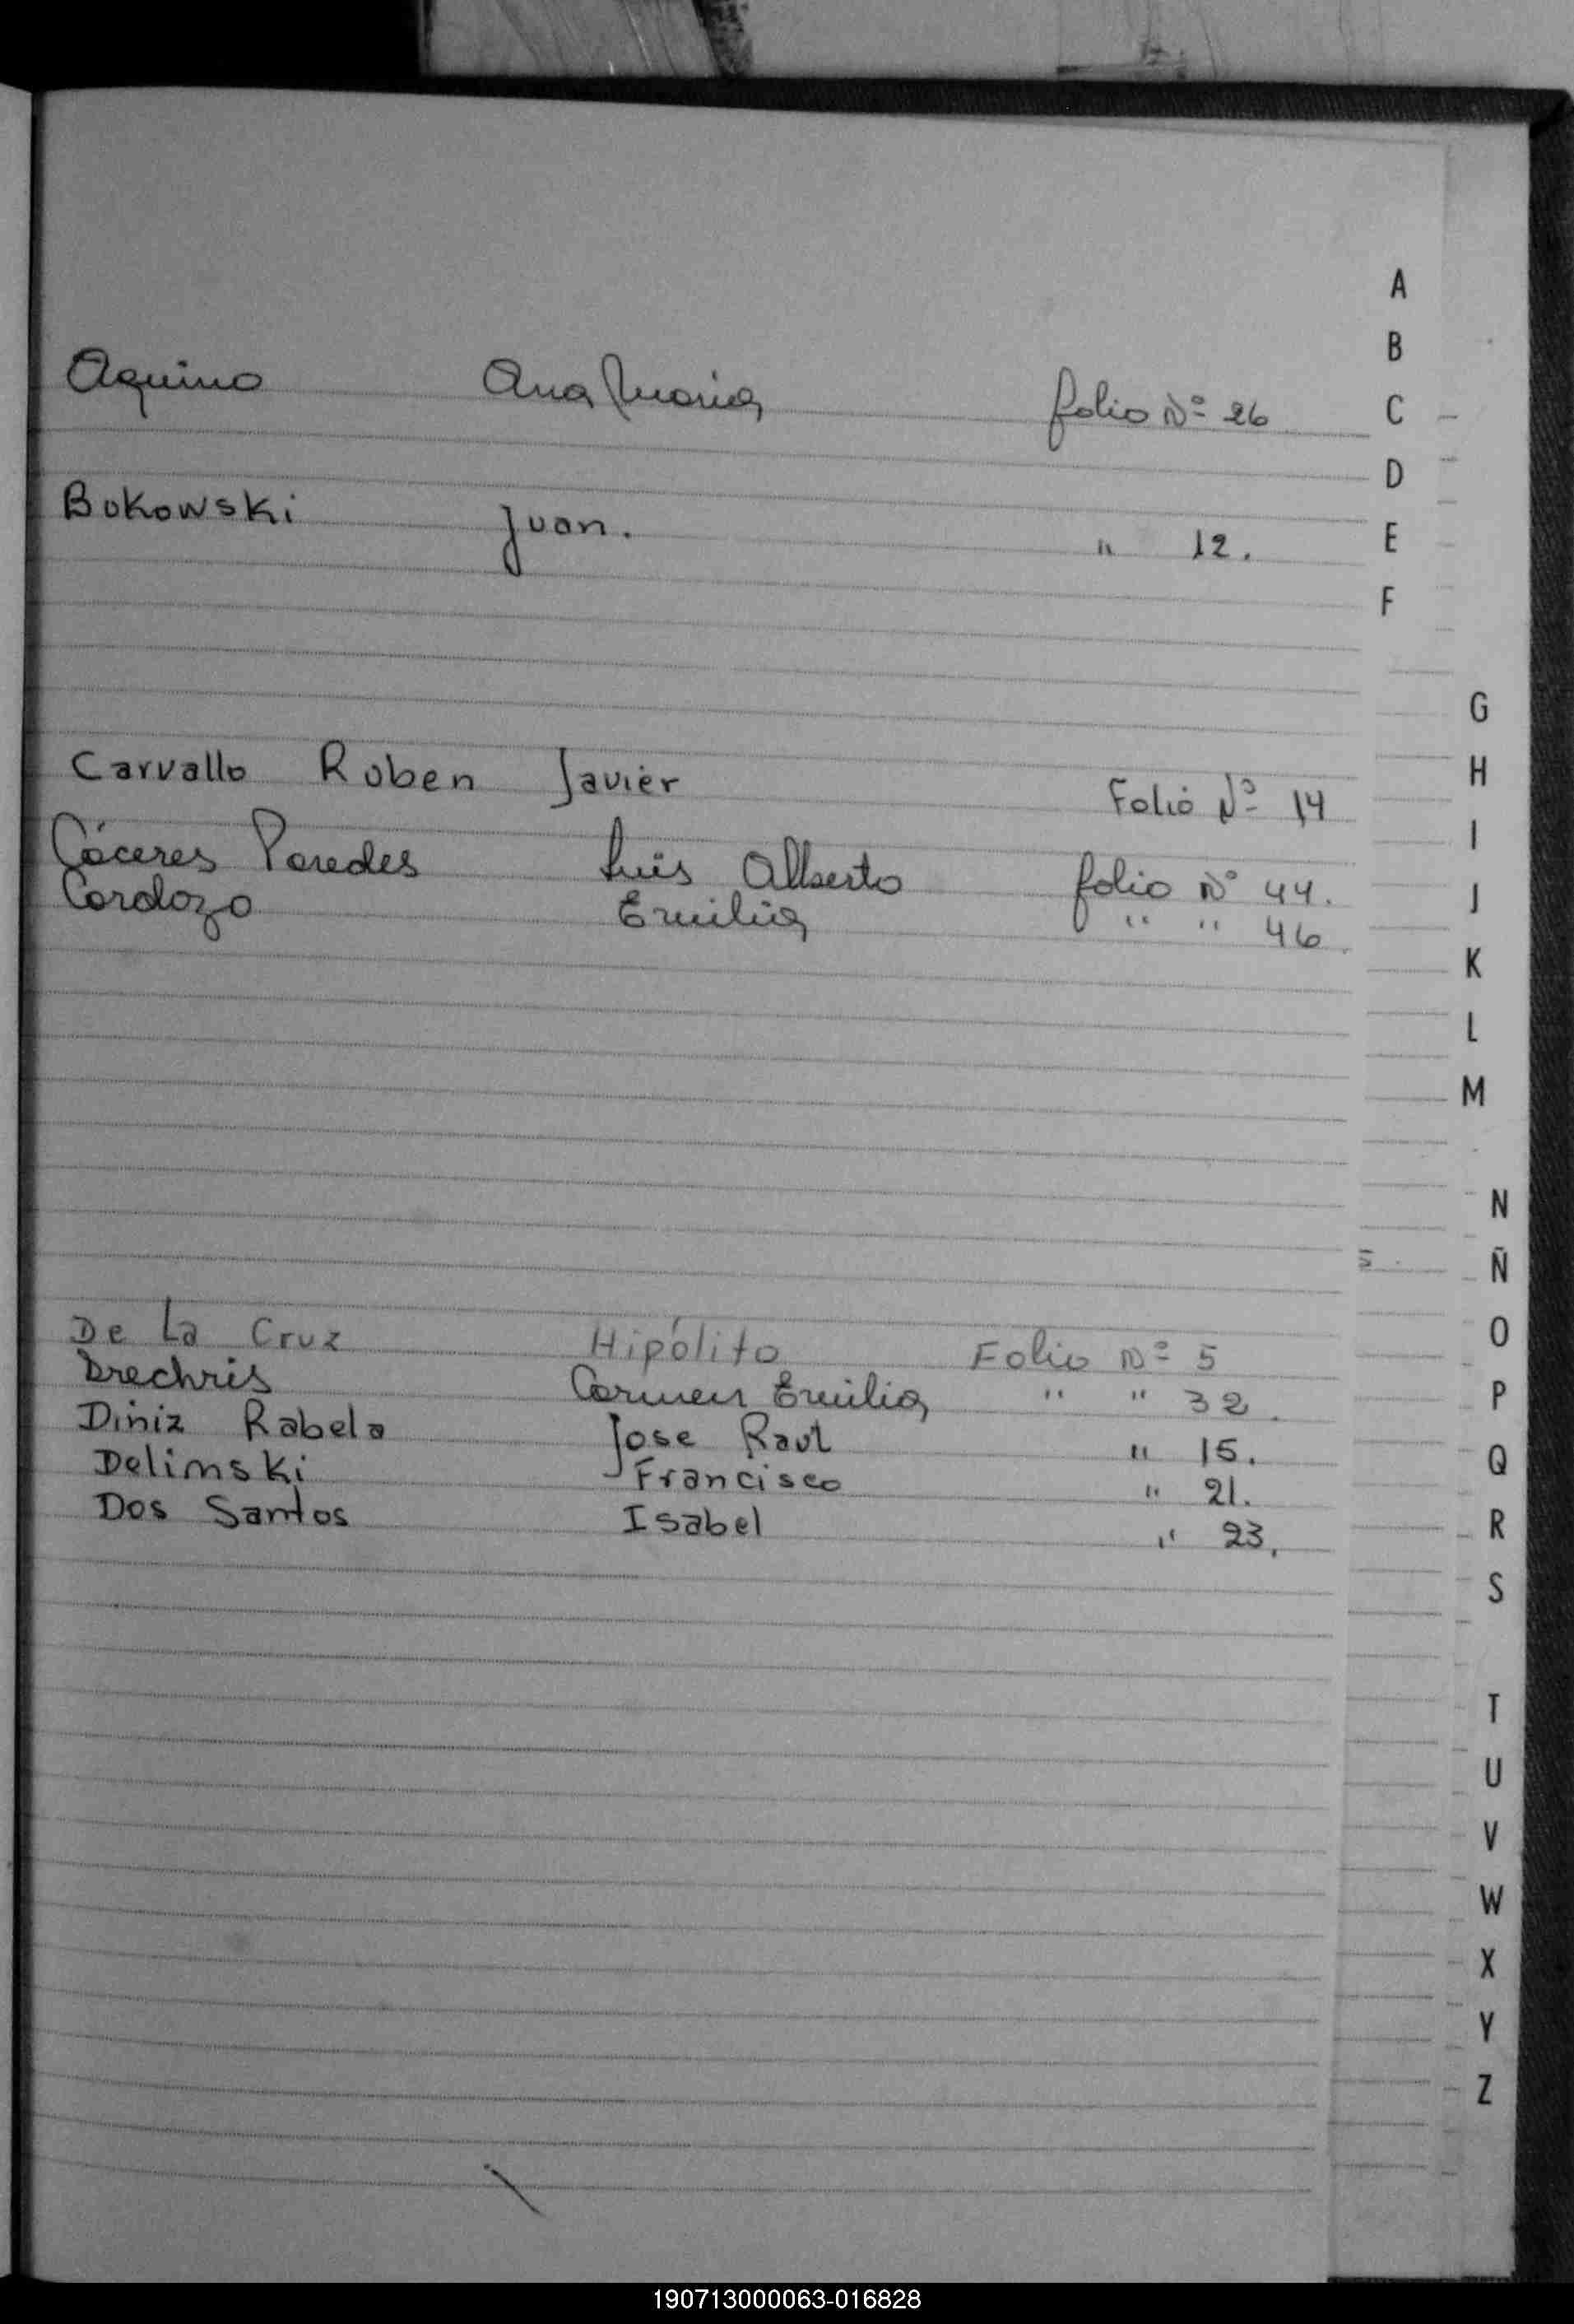 A
B
Aquino Ana Maria folio Nº 26
C
D
Bokowski Juan. " 12.
E
F
G
Carvallo Ruben Javier Folio Nº 14
H
I
Cáceres Paredes Luis Alberto folio Nº 44.
J
Cardozo Emilia " " 46.
K
L
M
N
Ñ
De La Cruz Hipólito Folio Nº 5
O
Drechris Carmen Emilia " " 32.
P
Diniz Rabelo Jose Raul " 15.
Q
Delimski Francisco " 21.
R
Dos Santos Isabel " 23.
S
T
U
V
W
X
Y
Z
190713000063-016828